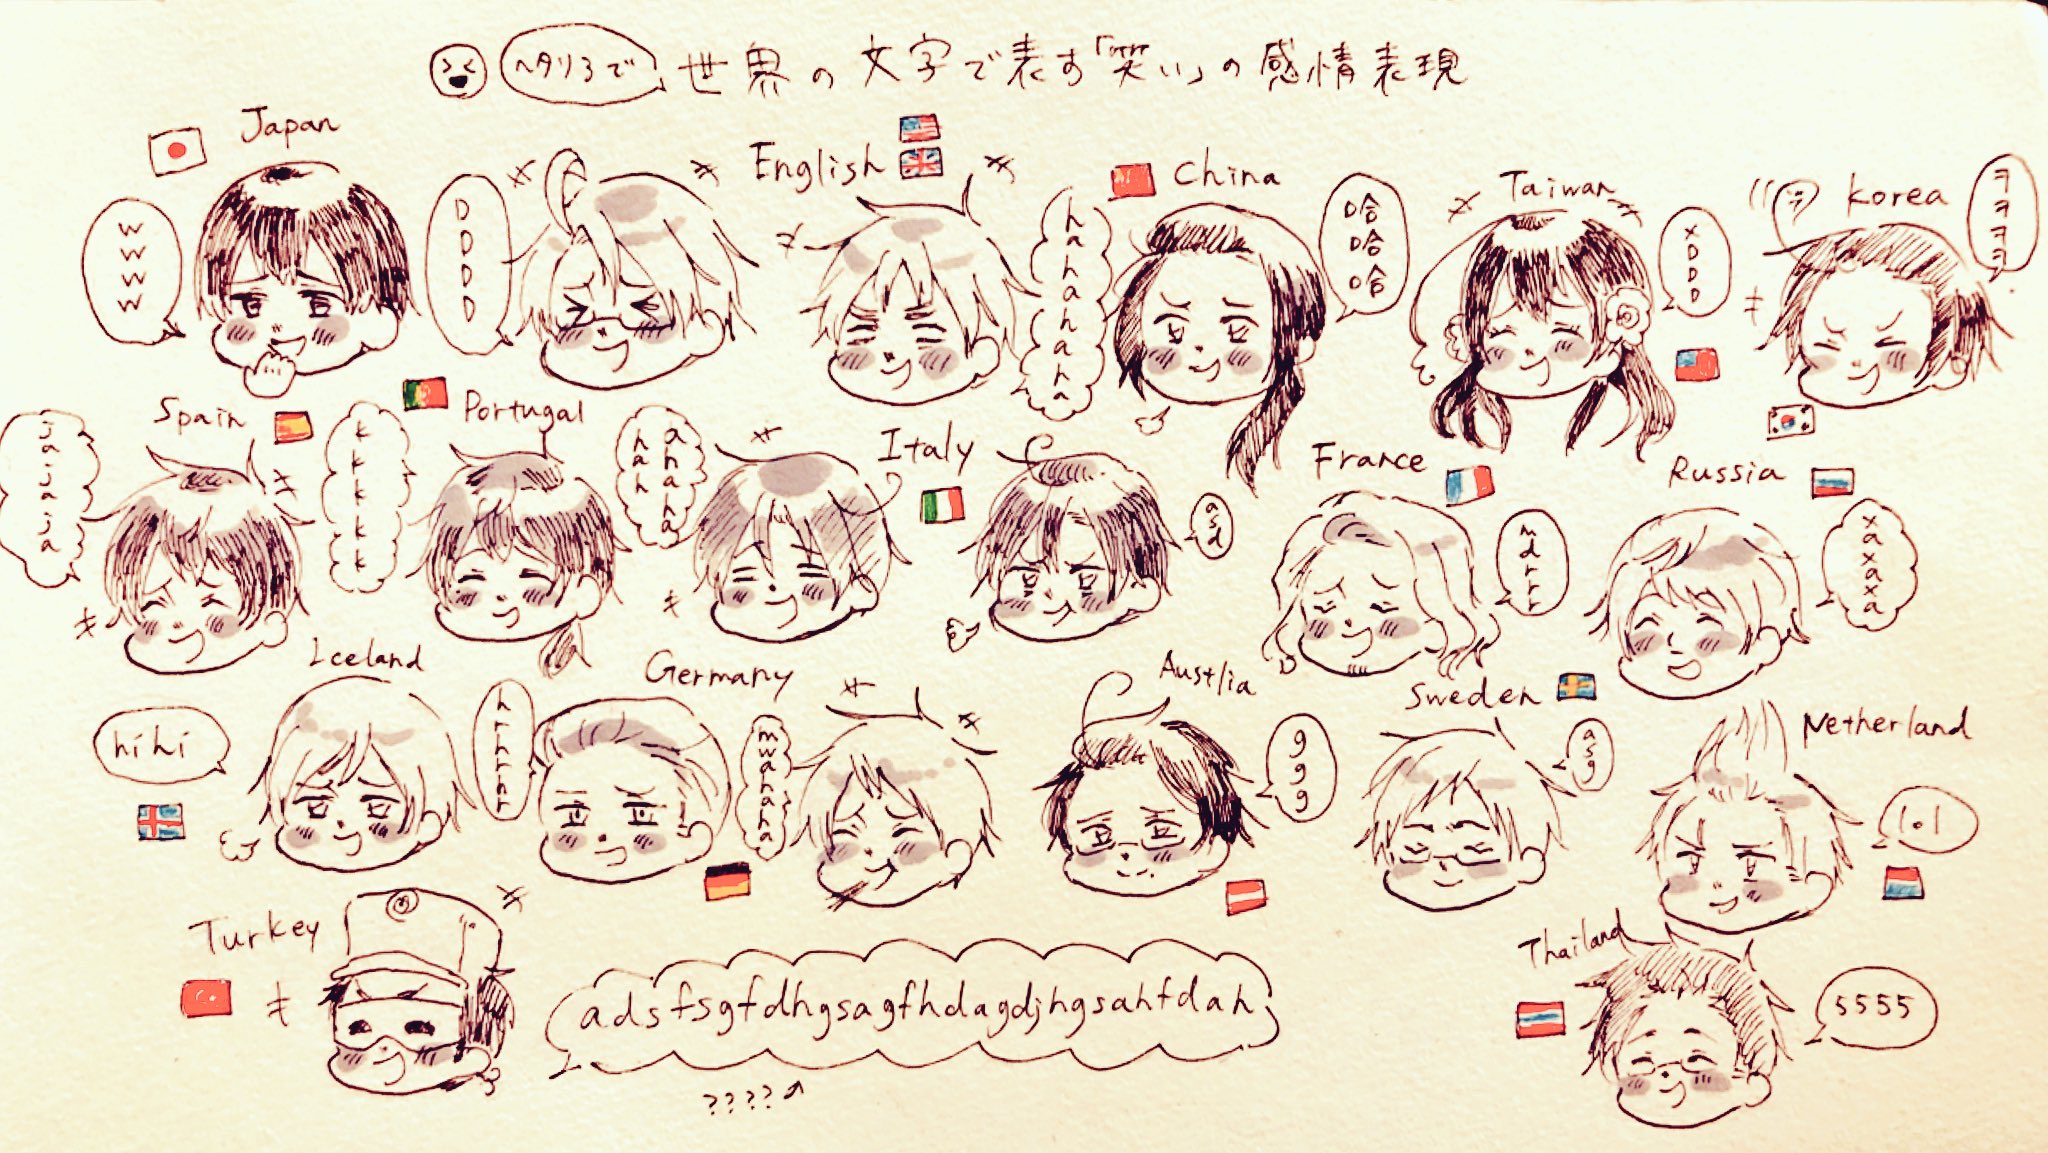 ヘタリアで 世界の文字で表す「笑い」の感情表現
Japan
wwww
DDDDD
English
hahahahaha
China
哈哈哈
Taiwan
XDDD
Korea
ㅋㅋㅋㅋ
Spain
jajajaja
Portugal
kkkkkk
ahahaha
hah
Italy
asd
France
mdrrr
Russia
xaxaxaxa
Iceland
hihi
Germany
hrhrhrhr
mwahaha
Austlia
ggg
Sweden
asg
Netherland
lol
Turkey
adsfsgfdhgsagfhdagdjhgsahfdah
????
Thailand
5555